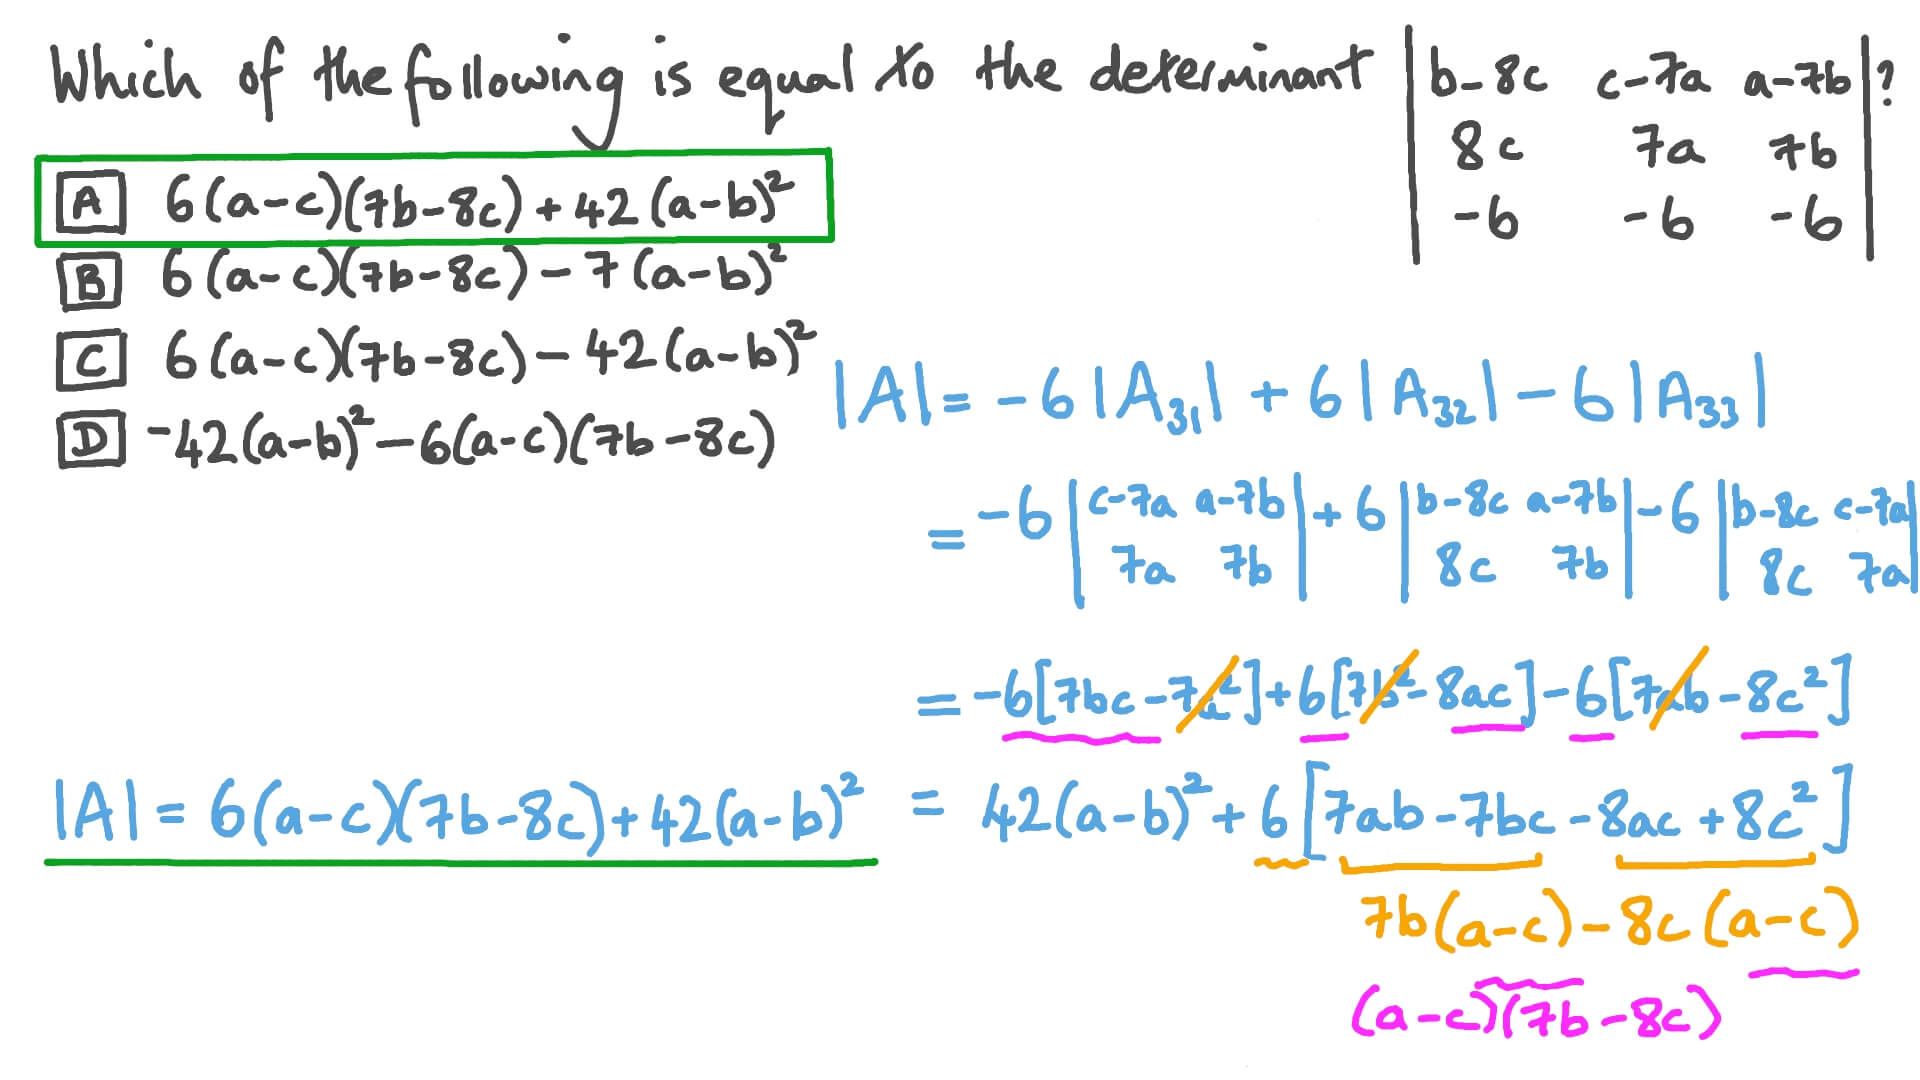 Which of the following is equal to the determinant | b-8c c-7a a-7b |?
| 8c 7a 7b |
| -6 -6 -6 |
A 6(a-c)(7b-8c)+42(a-b)²
B 6(a-c)(7b-8c)-7(a-b)²
C 6(a-c)(7b-8c)-42(a-b)²
D -42(a-b)²-6(a-c)(7b-8c)
|A| = -6|A₃₁| + 6|A₃₂| - 6|A₃₃|
= -6 | c-7a a-7b | + 6 | b-8c a-7b | - 6 | b-8c c-7a |
| 7a 7b | | 8c 7b | | 8c 7a |
= -6[7bc-7a²]+6[7b²-8ac]-6[7ab-8c²]
= 42(a-b)²+6[7ab-7bc-8ac+8c²]
7b(a-c)-8c(a-c)
(a-c)(7b-8c)
|A| = 6(a-c)(7b-8c)+42(a-b)²